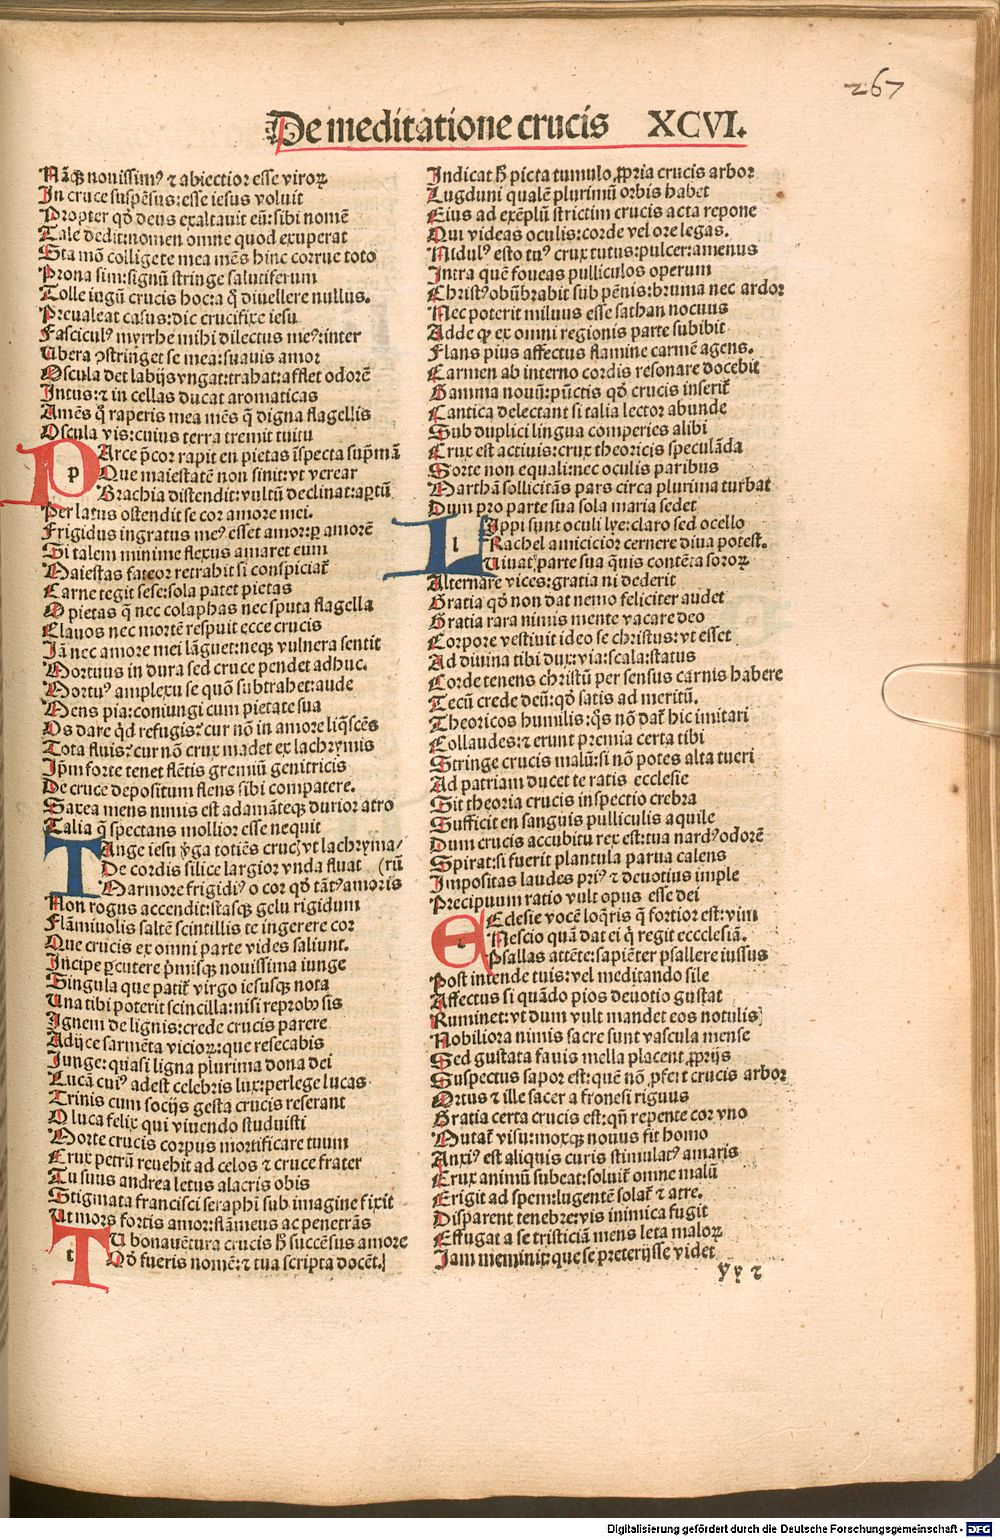 267
De meditatione crucis XCVI.
Nāqꝫ nouissimꝰ ⁊ abiectior esse viroꝝ
In cruce suspēsus: esse iesus voluit
Propter qd̓ deus exaltauit eū: sibi nomē
Tale dedit: nomen omne quod exuperat
Sta mō collige te mea mēs hinc corrue toto
Prona sim: signū stringe salutiferum
Tolle iugū crucis hoc: a q̊ diuellere nullus.
Preualeat casus: dic crucifixe iesu
Fasciculꝰ myrrhe mihi dilectus meꝰ: inter
Ubera ꝯstringet se mea: suauis amor
Oscula det labijs vngat: trahat: afflet odorē
Intus: ⁊ in cellas ducat aromaticas
Amēs q̊ raperis mea mēs q̄ digna flagellis
Oscula vis: cuius terra tremit tuitu
pArce p̄cor rapit en pietas īspecta sup̄mā
Que maiestatē non sinit: vt verear
Brachia distendit: vultū declinat: aꝑtū
Per latus ostendit se cor amore mei.
Frigidus ingratus meꝰ esset amor: ꝑ amorē
Si talem minime flexus amaret eum
Maiestas fateor retrahit si conspiciat᷑
Carne tegit sese: sola patet pietas
O pietas q̄ nec colaphas nec sputa flagella
Clauos nec mortē respuit ecce crucis
Iā nec amore mei lāguet: neqꝫ vulnera sentit
Mortuus in dura sed cruce pendet adhuc.
Mortuꝰ amplexu se quō subtrahet: aude
Mens pia: coniungi cum pietate sua
Os dare qd̓ refugis? cur nō in amore liq̄scēs
Tota fluis? cur nō crux madet ex lachrymis
Ip̄m forte tenet flētis gremiū genitricis
De cruce depositum flens sibi compatere.
Saxea mens nimis est adamāteqꝫ durior atro
Talia q̄ spectans mollior esse nequit
TAnge iesu v̓ga totiēs crucꝭ vt lachryma/
De cordis silice largior vnda fluat (rū
Marmore frigidiꝰ o cor qd̓ tātꝰ amoris
Non rogus accendit: stasqꝫ gelu rigidum
Flāmiuolis saltē scintillis te ingerere cor
Que crucis ex omni parte vides saliunt.
Incipe ꝑcutere p̄misqꝫ nouissima iunge
Singula que patit᷑ virgo iesusqꝫ nota
Una tibi poterit scintilla: nisi reprobꝰ sis
Ignem de lignis: crede crucis parere
Adijce sarmēta vicioꝝ: que resecabis
Iunge: quasi ligna plurima dona dei
Lucā cuiꝰ adest celebris lux: perlege lucas
Trinis cum socijs gesta crucis reserant
O luca felix qui viuendo studuisti
Morte crucis corpus mortificare tuum
Crux petrū reuehit ad celos ⁊ cruce frater
Tu suus andrea letus alacris obis
Stigmata francisci seraphī sub imagine fixit
Ut mors fortis amor: flāmeus ac penetrās
tTU bonauētura crucis h̄ succēsus amore
Qd̓ fueris nomē: ⁊ tua scripta docēt.
Indicat h̄ picta tumulo ꝓpria crucis arbor
Lugduni qualē plurimū orbis habet
Eius ad exēplū strictim crucis acta repone
Qui videas oculis: corde vel ore legas.
Nidulꝰ esto tuꝰ crux tutus: pulcer: amenus
Intra quē foueas pulliculos operum
Christꝰ obūbrabit sub pēnis: bruma nec ardor
Nec poterit miluus esse sathan nocuus
Adde qꝫ ex omni regionis parte subibit
Flans pius affectus flamine carmē agens.
Carmen ab interno cordis resonare docebit
Gamma nouū: pūctis qd̓ crucis inserit᷑
Cantica delectant si talia lector abunde
Sub duplici lingua comperies alibi
Crux est actiuis: crux theoricis speculāda
Sorte non equali: nec oculis paribus
Marthā sollicitās pars circa plurima turbat
Dum pro parte sua sola maria sedet
lLIppi sunt oculi lye: claro sed ocello
Rachel amicicior cernere diua potest.
Uiuat parte sua quis contēta soroꝝ
Alternare vices: gratia ni dederit
Gratia qd̓ non dat nemo feliciter audet
Gratia rara nimis mente vacare deo
Corpore vestiuit ideo se christus: vt esset
Ad diuina tibi dux: via: scala: status
Corde tenens christū per sensus carnis habere
Tecū crede deū: qd̓ satis ad meritū.
Theoricos humilis: q̄s nō dat᷑ hic imitari
Collaudes: ⁊ erunt premia certa tibi
Stringe crucis malū: si nō potes alta tueri
Ad patriam ducet te ratis ecclesie
Sit theoria crucis inspectio crebra
Sufficit en sanguis pulliculis aquile
Dum crucis accubitu rex est: tua nardꝰ odorē
Spirat: si fuerit plantula parua calens
Impositas laudes priꝰ ⁊ deuotius imple
Precipuum ratio vult opus esse dei
eEcclesie vocē loq̄ris q̄ fortior est: vim
Nescio quā dat ei q̄ regit eccclesiā.
Psallas attēte: sapiēter psallere iussus
Post intende tuis: vel meditando sile
Affectus si quādo pios deuotio gustat
Ruminet: vt dum vult mandet eos notulis
Nobiliora nimis sacre sunt vascula mense
Sed gustata fauis mella placent ꝓprijs
Suspectus sapor est: quē nō ꝓfert crucis arbor
Ortus ⁊ ille sacer a fronesi riguus
Gratia certa crucis est: qn̄ repente cor vno
Mutat᷑ visu: moxqꝫ nouus fit homo
Anxiꝰ est aliquis curis stimulatꝰ amaris
Crux animū subeat: soluit᷑ omne malū
Erigit ad spem: lugentē solat᷑ ⁊ atre.
Disparent tenebre: vis inimica fugit
Effugat a se tristiciā mens leta maloꝝ
Iam meminit: que se preterijsse videt
yy 2
Digitalisierung gefördert durch die Deutsche Forschungsgemeinschaft - DFG